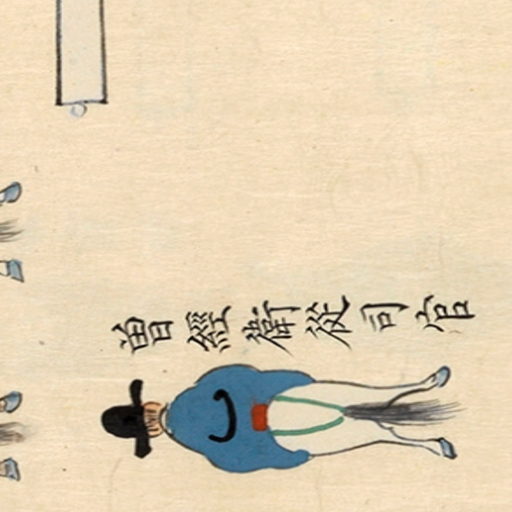 曾經衛從司官